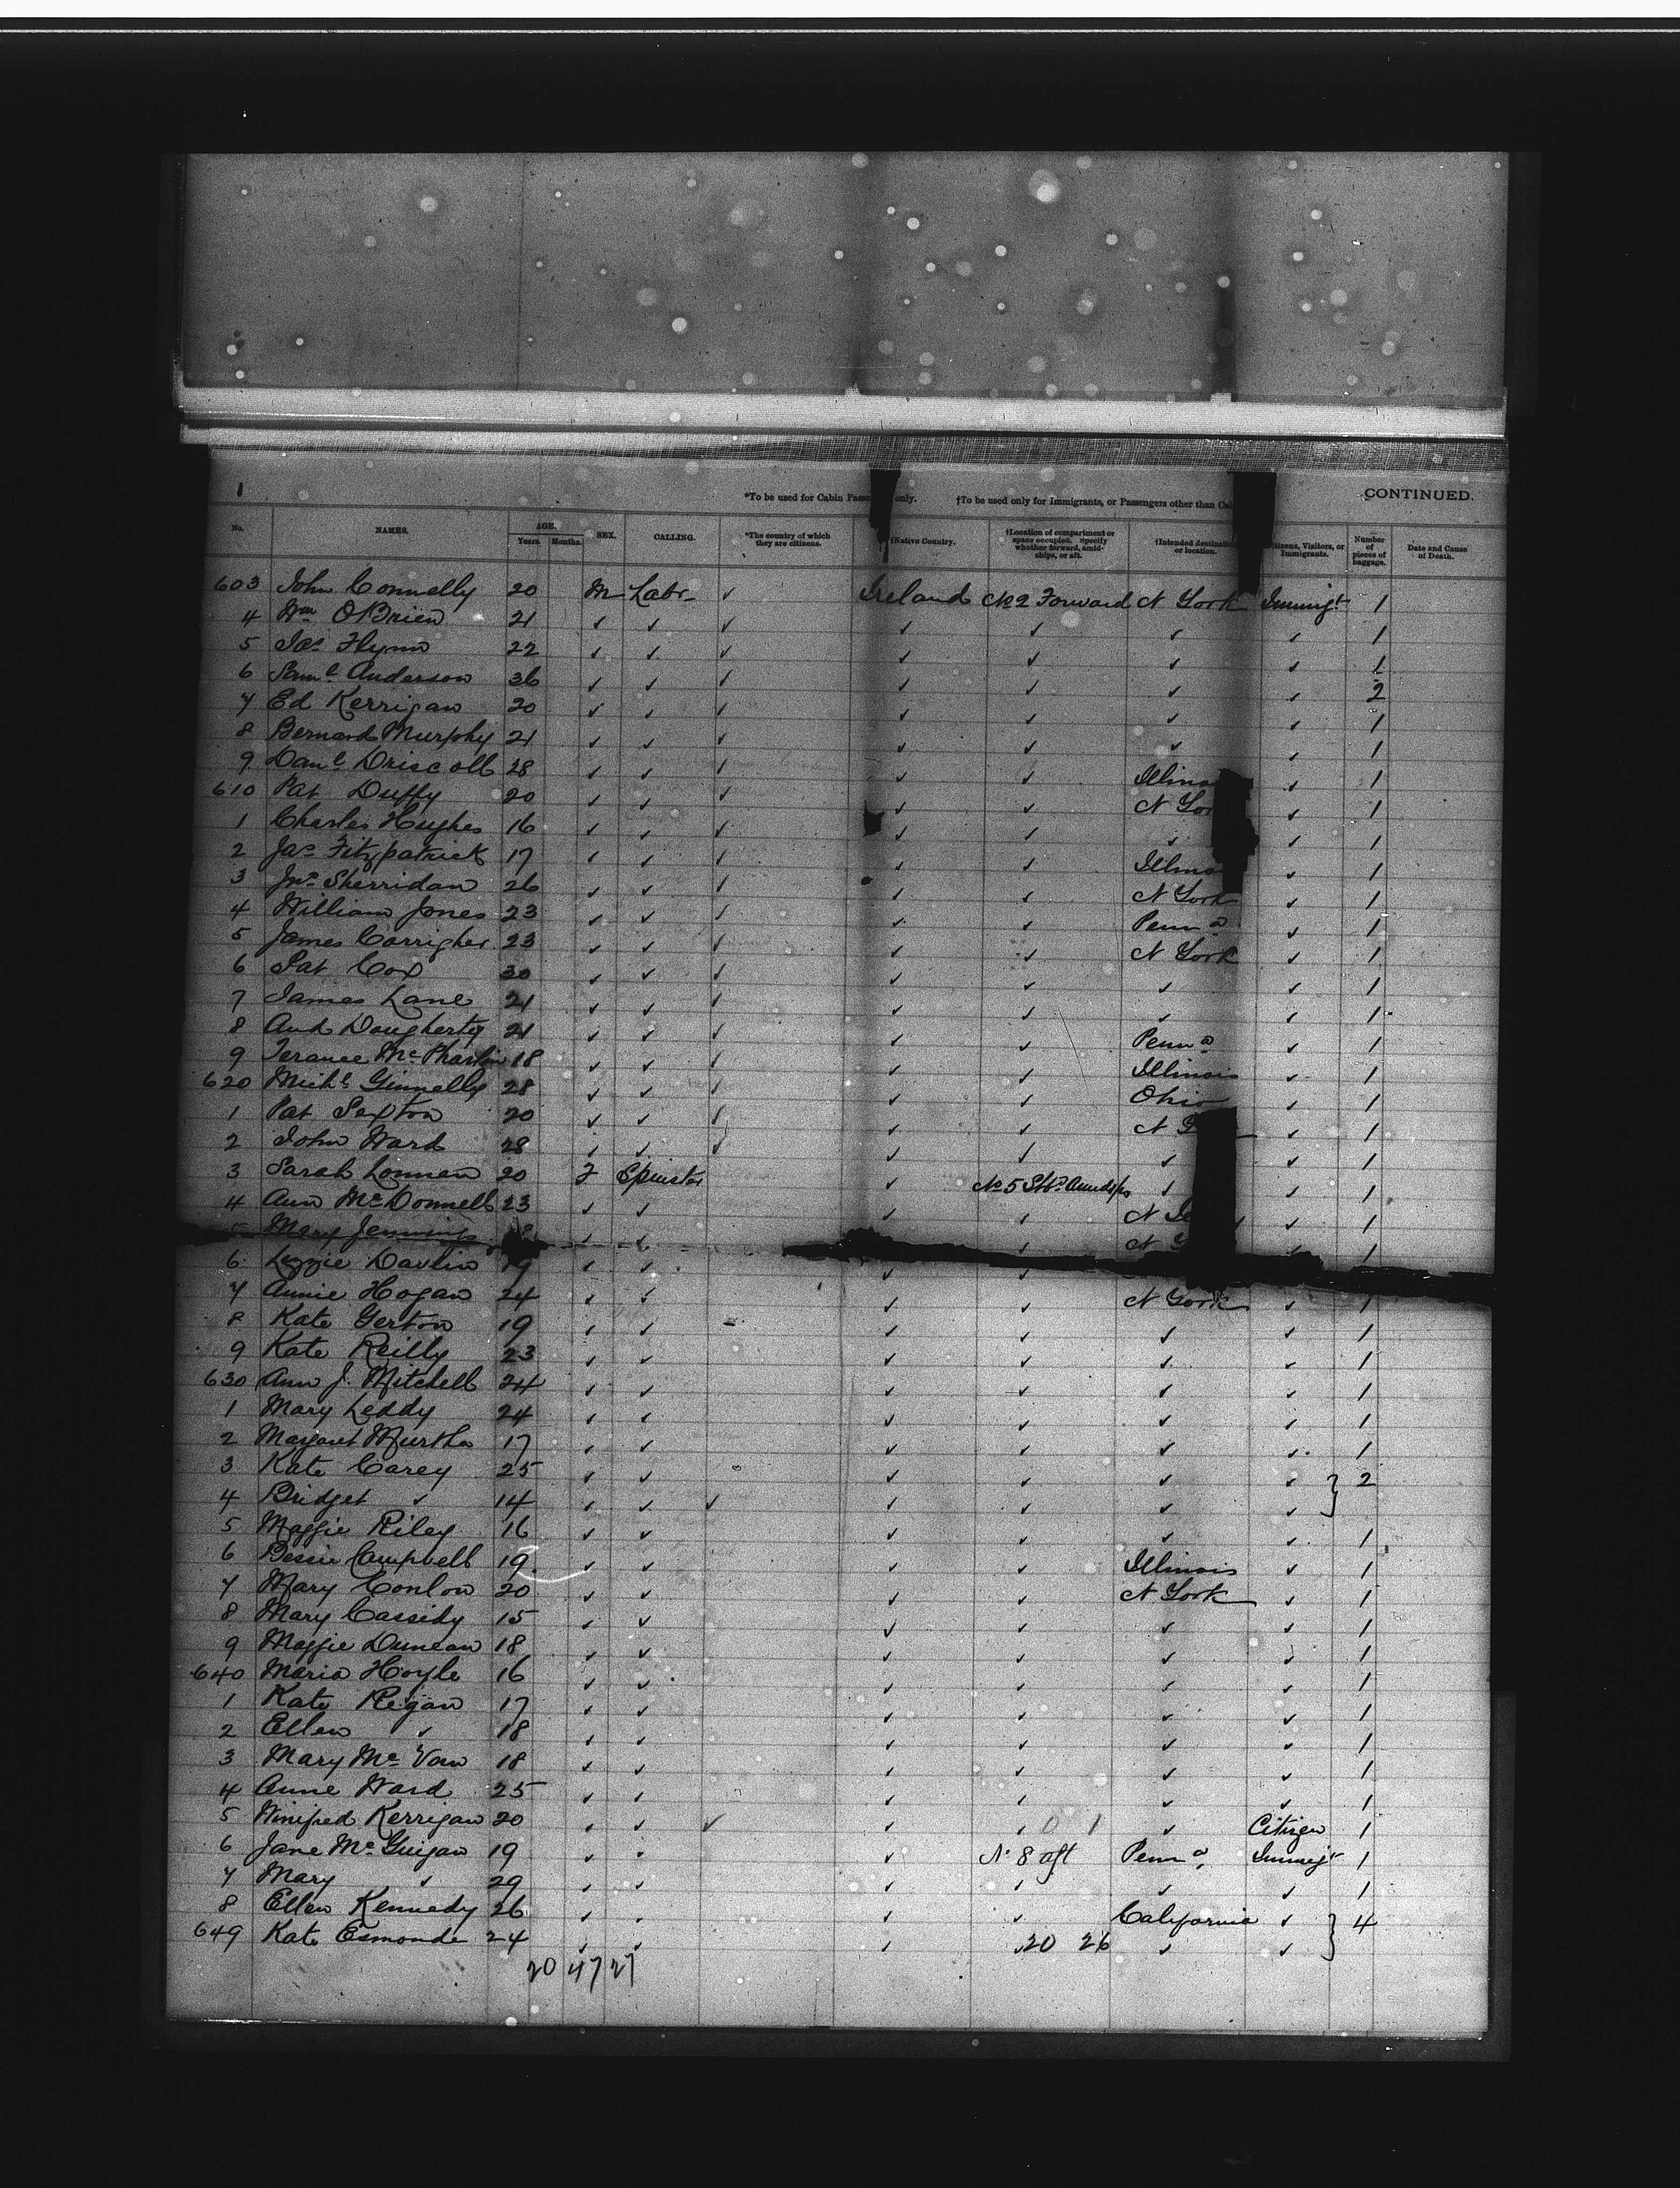 1
*To be used for Cabin Passe only. †To be used only for Immigrants, or Passengers other than Cab CONTINUED.
No. NAMES. AGE. Years. Months. SEX. CALLING. *The country of which they are citizens. †Native Country. †Location of compartment or space occupied. Specify whether forward, amidships, or aft. †Intended destinati or location. itizens, Visitors, or Immigrants. Number of pieces of baggage. Date and Cause of Death.
603 John Connelly 20 M Labr ✓ Ireland No 2 Forward N York Immigt 1
4 Wm OBrien 21 ✓ ✓ ✓ ✓ ✓ ✓ ✓ 1
5 Jas Flynn 22 ✓ ✓ ✓ ✓ ✓ ✓ ✓ 1
6 Saml Anderson 36 ✓ ✓ ✓ ✓ ✓ ✓ ✓ 2
7 Ed Kerrigan 20 ✓ ✓ ✓ ✓ ✓ ✓ ✓ 1
8 Bernard Murphy 21 ✓ ✓ ✓ ✓ ✓ ✓ ✓ 1
9 Danl Driscoll 28 ✓ ✓ ✓ ✓ ✓ Illino ✓ 1
610 Pat Duffy 20 ✓ ✓ ✓ ✓ ✓ N Yor ✓ 1
1 Charles Hughes 16 ✓ ✓ ✓ ✓ ✓ ✓ ✓ 1
2 Jas Fitzpatrick 17 ✓ ✓ ✓ ✓ ✓ Illino ✓ 1
3 Jno Sherridan 26 ✓ ✓ ✓ ✓ ✓ N York ✓ 1
4 William Jones 23 ✓ ✓ ✓ ✓ ✓ Penna ✓ 1
5 James Corrigher 23 ✓ ✓ ✓ ✓ ✓ N York ✓ 1
6 Pat Cox 30 ✓ ✓ ✓ ✓ ✓ ✓ ✓ 1
7 James Lane 21 ✓ ✓ ✓ ✓ ✓ ✓ ✓ 1
8 And Dougherty 21 ✓ ✓ ✓ ✓ ✓ Penna ✓ 1
9 Terance Mc Pharlin 18 ✓ ✓ ✓ ✓ ✓ Illinois ✓ 1
620 Michl Ginnelly 28 ✓ ✓ ✓ ✓ ✓ Ohio ✓ 1
1 Pat Sexton 20 ✓ ✓ ✓ ✓ ✓ N Y ✓ 1
2 John Ward 28 ✓ ✓ ✓ ✓ ✓ ✓ ✓ 1
3 Sarah Lonnen 20 F Spinster ✓ No 5 ✓ ✓ 1
4 Ann McDonnell 23 ✓ ✓ ✓ ✓ N ✓ 1
5 Mary Jennings ✓ ✓ ✓ N Y ✓ 1
6 Lizzie Davlin 19 ✓ ✓ ✓ ✓
7 Annie Hogan 24 ✓ ✓ ✓ ✓ N York ✓ 1
8 Kate Gerton 19 ✓ ✓ ✓ ✓ ✓ ✓ 1
9 Kate Reilly 23 ✓ ✓ ✓ ✓ ✓ ✓ 1
630 Ann J. Mitchell 24 ✓ ✓ ✓ ✓ ✓ ✓ 1
1 Mary Leddy 24 ✓ ✓ ✓ ✓ ✓ ✓ 1
2 Margaret Murtha 17 ✓ ✓ ✓ ✓ ✓ ✓ 1
3 Kate Carey 25 ✓ ✓ ✓ ✓ ✓ ✓ } 2
4 Bridget ✓ 14 ✓ ✓ ✓ ✓ ✓ ✓ ✓
5 Maggie Riley 16 ✓ ✓ ✓ ✓ ✓ ✓ 1
6 Bessie Campbell 19 ✓ ✓ ✓ ✓ Illinois ✓ 1
7 Mary Conlon 20 ✓ ✓ ✓ ✓ N York ✓ 1
8 Mary Cassidy 15 ✓ ✓ ✓ ✓ ✓ ✓ 1
9 Maggie Duncan 18 ✓ ✓ ✓ ✓ ✓ ✓ 1
640 Maria Hoyle 16 ✓ ✓ ✓ ✓ ✓ ✓ 1
1 Kate Regan 17 ✓ ✓ ✓ ✓ ✓ ✓ 1
2 Ellen ✓ 18 ✓ ✓ ✓ ✓ ✓ ✓ 1
3 Mary Mc Van 18 ✓ ✓ ✓ ✓ ✓ ✓ 1
4 Anne Ward 25 ✓ ✓ ✓ ✓ ✓ ✓ 1
5 Winifred Kerrigan 20 ✓ ✓ ✓ ✓ ✓ 0 1 ✓ Citizen 1
6 Jane McGuigan 19 ✓ ✓ ✓ No 8 aft Penna Immigt 1
7 Mary ✓ 29 ✓ ✓ ✓ ✓ ✓ ✓ 1
8 Ellen Kennedy 26 ✓ ✓ ✓ ✓ California ✓ } 4
649 Kate Esmonde 24 ✓ ✓ ✓ ✓ 20 26 ✓ ✓
20 47 27